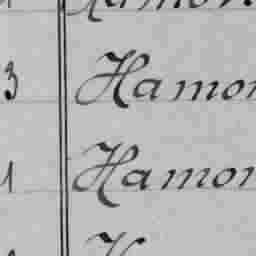 3 Hamon
1 Hamon